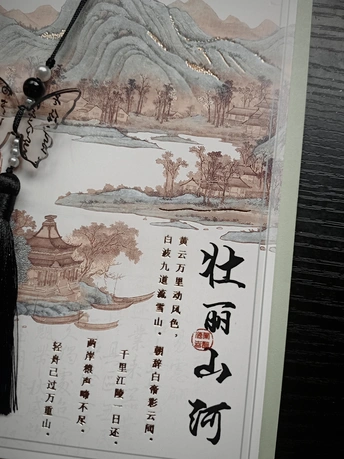 壮丽山河
黄云万里动风色，
白波九道流雪山。
朝辞白帝彩云间，
千里江陵一日还。
两岸猿声啼不尽，
轻舟已过万重山。